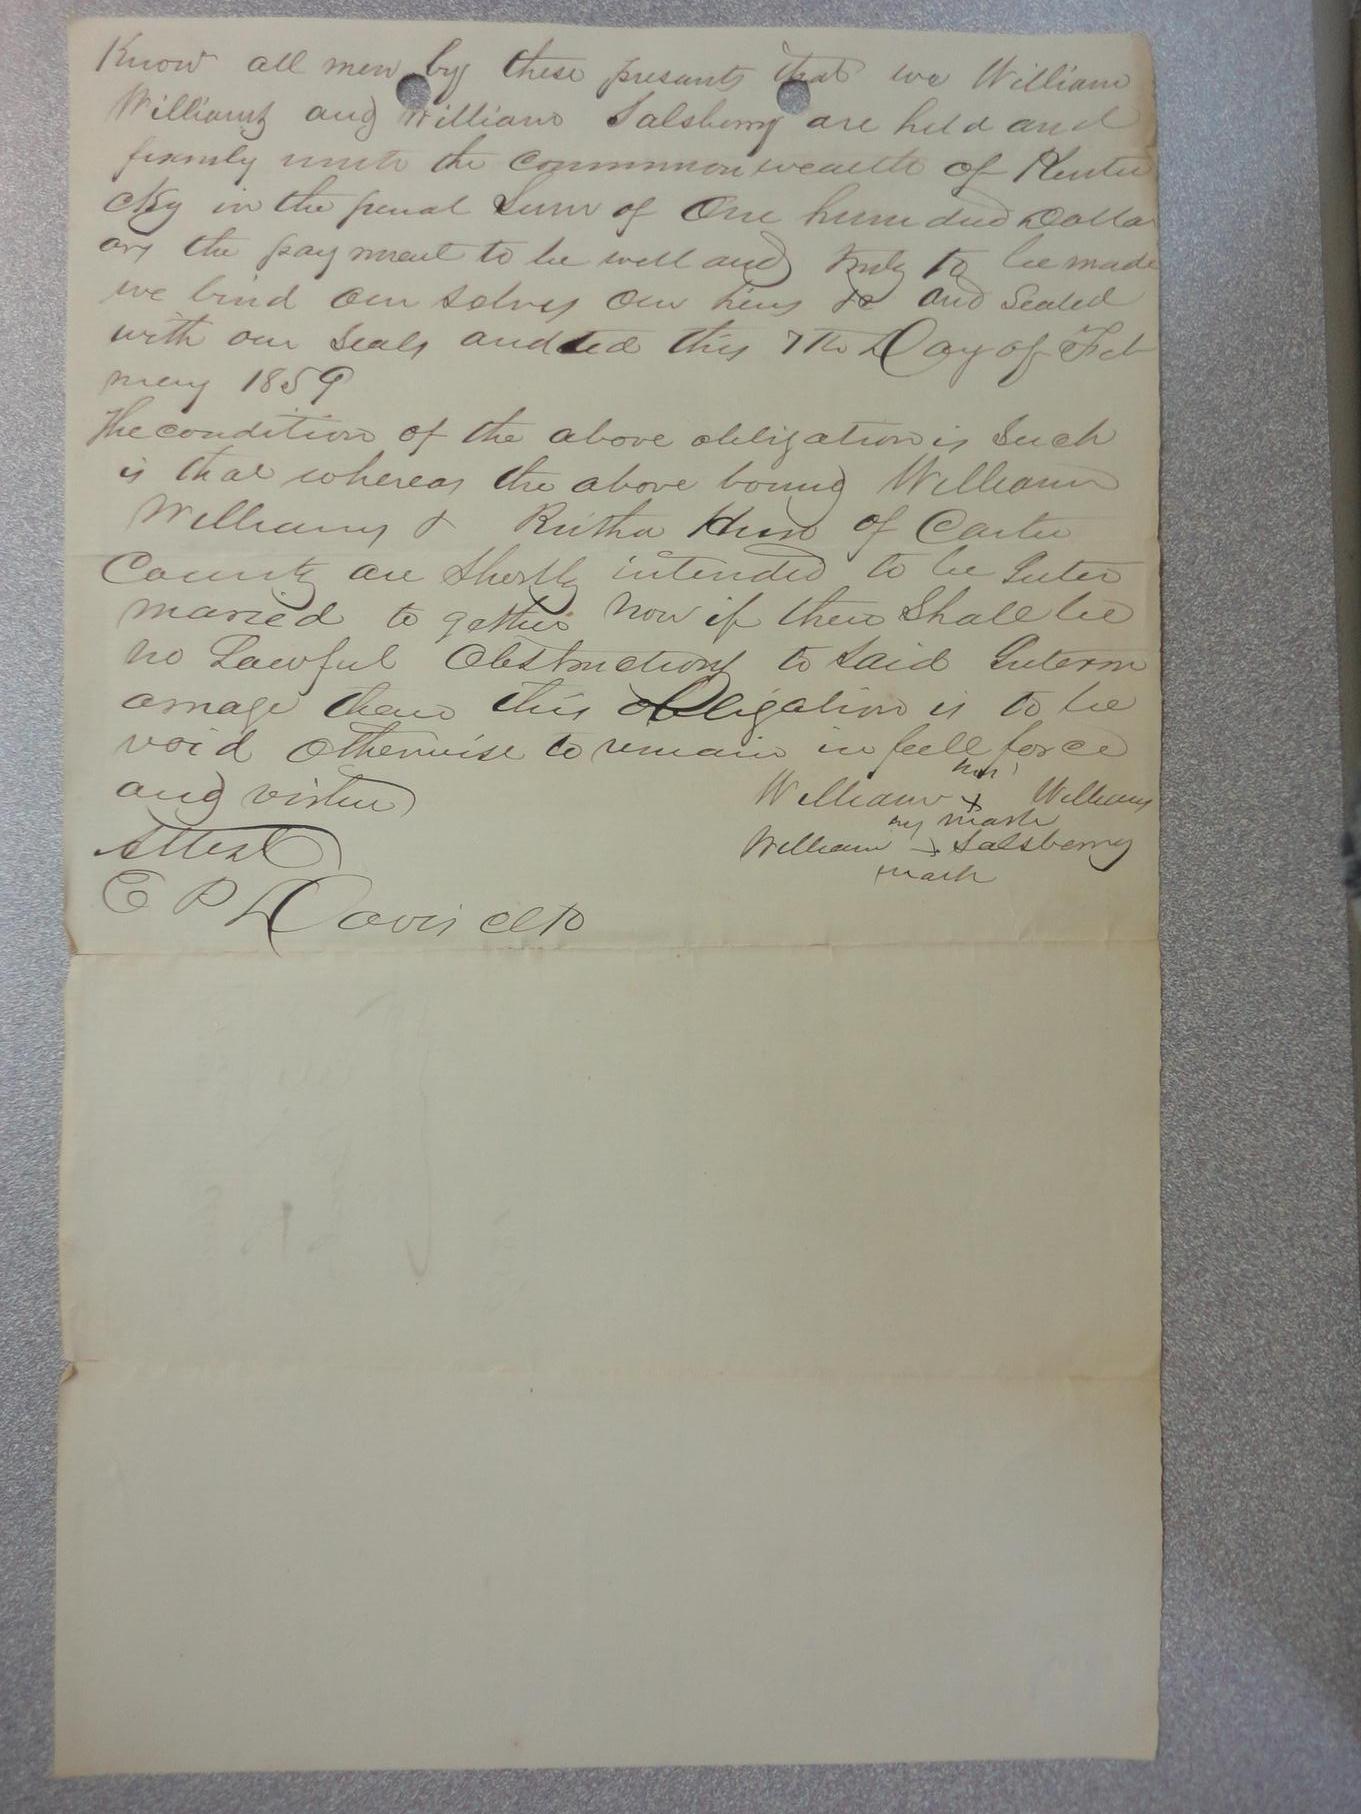 Know all men by these presants that we William
Williams and William Salsberry are held and
firmly unto the Commmonwealth of Kentu
cky in the penal Sum of One hundred Dolla
ars the payment to be well and truly to be made
we bind our selves our heirs &c and Sealed
with our Seals and this 7th Day of Feb
ruary 1859
The condition of the above obligation is Such
is that whereas the above bound William
Williams & Rutha of Carter
County are Shortly intended to be Inter
maried to gether Now if there Shall be
no Lawful Obstructions to Said Interm
arriage then this obligation is to be
void otherwise to remain in full force
and virtue
his
William x Williams
mark
William x Salsberry
mark
Attest
E P Davis